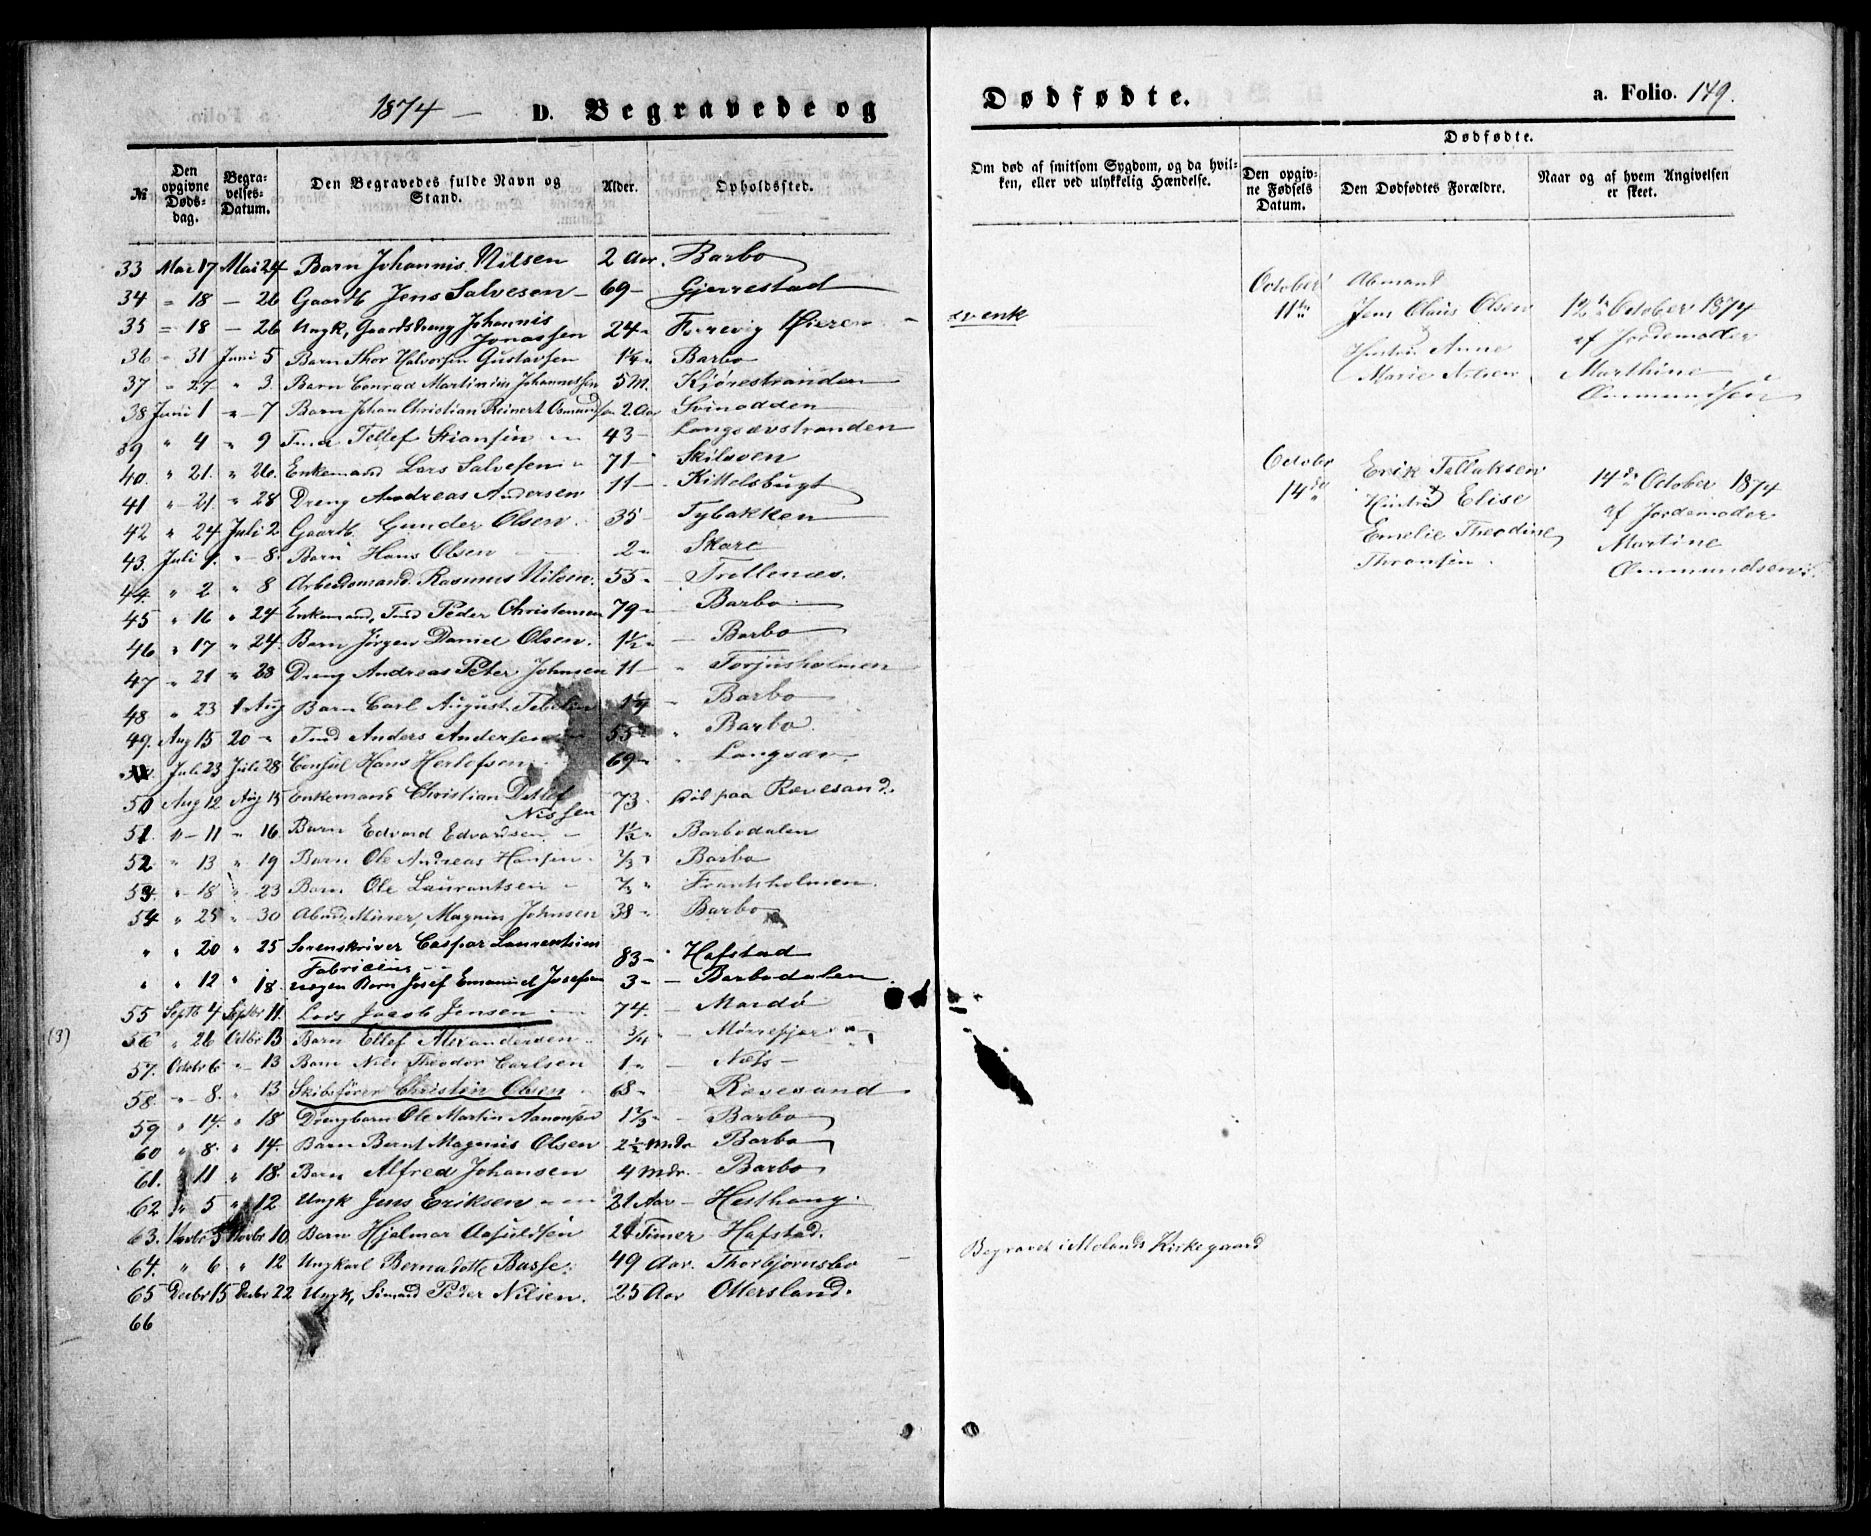 1874 — D. Begravede og
Dødfødte.
a. Folio. 149.
№
Den opgivne Døds-dag.
Begra-velses-Datum.
Den Begravedes fulde Navn og Stand.
Alder.
Opholdssted.
Om død af smitsom Sygdom, og da hvil-ken, eller ved ulykkelig Hændelse.
Dødfødte.
Den opgiv-ne Fødsels Datum.
Den Dødfødtes Forældre.
Naar og af hvem Angivelsen er skeet.
33 Mai 17 Mai 24 Barn Johannis Nilsen 2 Aar. Barbo
34 " 18 — 26 Gaardb Jens Salvesen — 69 — Gjerrestad
35 = 18 — 26 Ungk, Gaardsdreng Johannis Jonassen 24 "
36 " 31 Juni 5 Barn Thor Halvorsen Gustavsen 1¼ " Barbo
37 " 27 " 3 Barn Conrad Martinius Johannessen 5 M. Kjørestranden
38 Juni 1 " 7 Barn Johan Christian Reinert Osmundsen 2 Aar Svinodden
39 " 4 " 9 Tellef Stiansen — 43 — Langsævstranden
40. " 21. " 26. Enkemand Lars Salvesen " 71 — Skilsøen
41 " 21 " 28 Dreng Andreas Andersen 11 — Kittelsbugt
42 " 24 Juli 2 Gaardb Gunder Olsen. 35 — Tybakken
43. Juli 1. " 8. Barn Hans Olsen 2 " Skare
44. " 2 " 8 Arbeidsmand Rasmus Nilsen. 55 " Trollenæs.
45 " 16 " 24 Enkemand, Peder Christensen 79 " Barbo
46 " 17 " 24. Barn Jørgen Daniel Olsen. 1½ " — Barbo
47 " 21 " 28 Dreng Andreas Peter Johnsen 11 — " Torjusholmen
48 " 23 1 Aug Barn Carl August 1¼ — Barbo
49. Aug 15 20 " Anders Andersen 55 " Barbo.
Juli 23 Juli 28 Consul Hans Herlofsen 69 " " Langsæv.
50 Aug 12 Aug 15 Enkemand Christian Detlef Nissen 73. paa Revesand.
51. " 11 " 16 Barn Edvard Edvardsen — 1½ " Barbodalen
52 " 13 " 19 Barn Ole Andreas Hansen Barbo
53. " 18 " 23 Barn Ole Laurantsen —
54 " 25 " 30 Murer, Magnus Johnsen 38 " Barbo
" " 20 " 25 Sorenskriver Caspar Laurentius Fabricius 83 — Hafstad
" " 12 " 18. Barn Josef Emanuel Josefsen 3 " — Barbodalen
55 Septb 4 Septbr 11. Lars Jacob Jensen — 74. — Mardø
(3) 56 " 26 Octbr 13 Barn Ellef Alexandersen. ¾ —
57. Octobr 6 " 13 Barn Nils Theodor Carlsen 1 " — Næs —
58. " 8. " 13 Skibsfører Christen Olsen 68 " Revesand
59 " 14. " 18 Drengbarn Ole Martin Aanonsen — Barbo
60 " 8. " 14. Barn Bernt Magnus Olsen 2½ Mdr Barbo
61. " 11 " 18. Barn Alfred Johansen 4 Mdr. — Barbo
62 " 5 " 12 Ungk Jens Eriksen 21 Aar — Hesthaug.
63. Novbr 5 Novbr 10. Barn Hjalmar 24 Timer Hafstad.
64. " 6 " 12 Ungkarl Bernadotte Basse. 49 Aar. Thorbjørnsbo
65 Decbr 15 Decbr 22 Ungk, Peder Nilsen. 25 Aar Ottersland.
66
Begravet i Molands Kirkegaard
October 11te
Jens Claus Olsen
Hustru Anne
Marie
12te October 1874
af Jordemoder
Marthine
October 14de
Erik Tellaksen
Hustru Elise
Emelie Theodine
14de October 1874
af Jordemoder
Martine